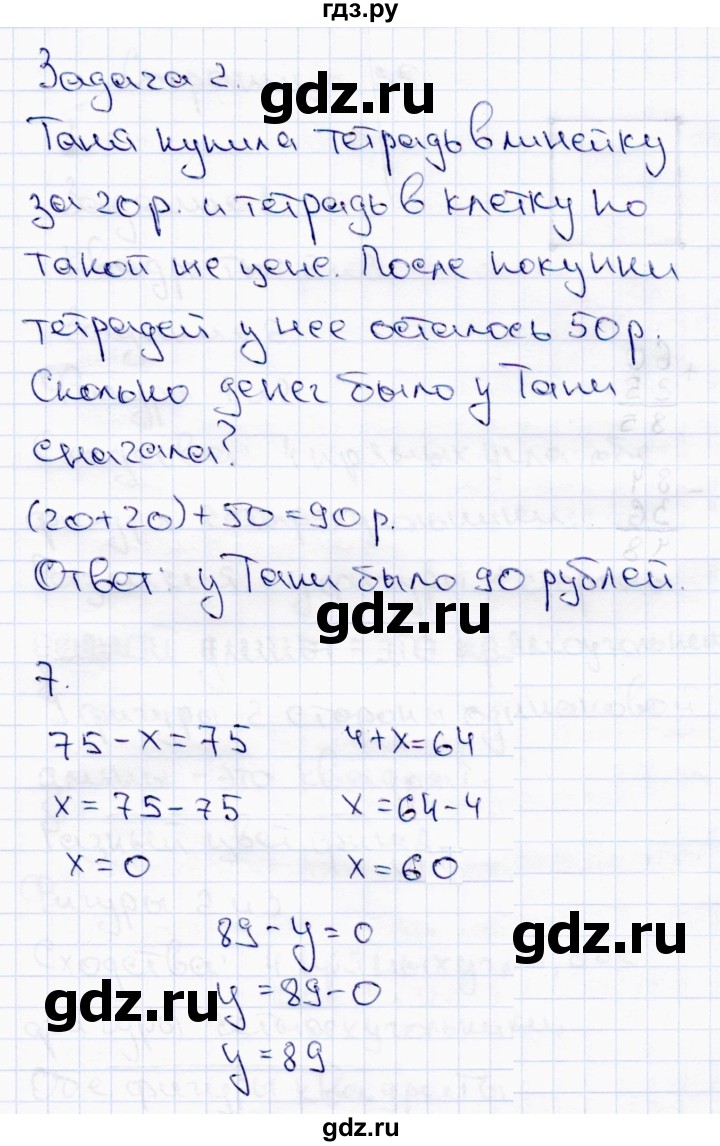 гдз.ру
Задача 2.
gdz.ru
Таня купила тетрадь в линейку
за 20 р. и тетрадь в клетку по
такой же цене. После покупки
тетрадей у нее осталось 50 р.
Сколько денег было у Тани
сначала?
(20+20)+50=90 р.
Ответ: у Тани было 90 рублей.
gdz.ru
7.
75-x=75 4+x=64
x=75-75 x=64-4
x=0 x=60
89-y=0
gdz.ru
gdz.ru
y=89-0
y=89
gdz.ru